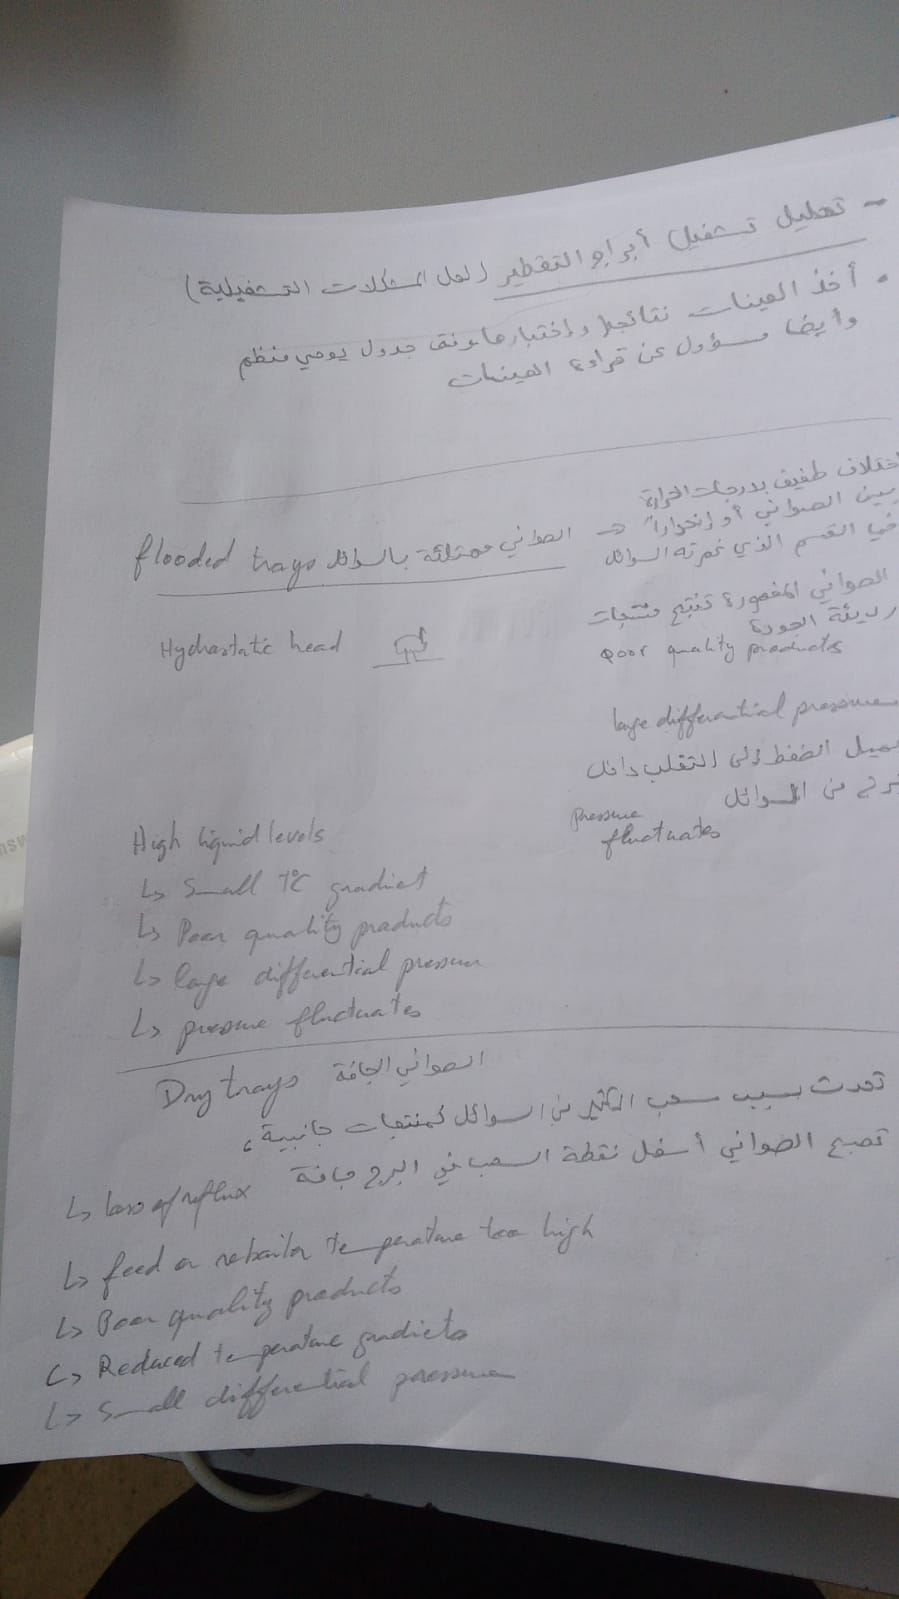 - تحليل تشغيل أبراج التقطير (لحل المشكلات التشغيلية)
• أخذ العينات نتائجها وإختبارها وفق جدول يومي منظم
وأيضا مسؤول عن قراءة العينات
flooded trays الصواني ممتلئة بالسوائل →
إختلاف طفيف بدرجات الحرارة
بين الصواني أو إنحداراً
في القسم الذي غمرته السوائل
الصواني المغمورة تنتج منتجات
رديئة الجودة
Poor quality products
Hydrostatic head
large differential pressure
يميل الضغط إلى التقلب داخل
من السوائل
pressure
fluctuates
High liquid levels
↳ Small T°C gradient
↳ Poor quality products
↳ large differential pressure
↳ pressure fluctuates
Dry trays الصواني الجافة
تحدث بسبب سحب الكثير من السوائل كمنتجات جانبية،
تصبح الصواني أسفل نقطة السحب في البرج جافة
↳ loss of reflux
↳ feed or reboiler temperature too high
↳ Poor quality products
↳ Reduced temperature gradiets
↳ Small differential pressure